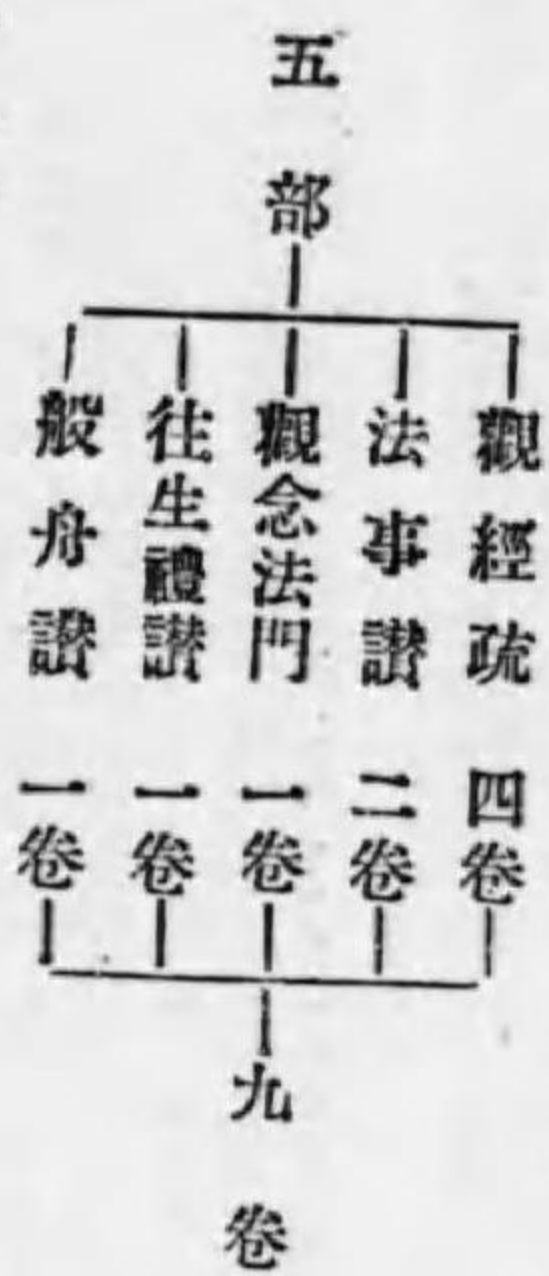 五部
觀經疏 四卷
法事讃 二卷
觀念法門 一卷
往生禮讃 一卷
般舟讃 一卷
九卷